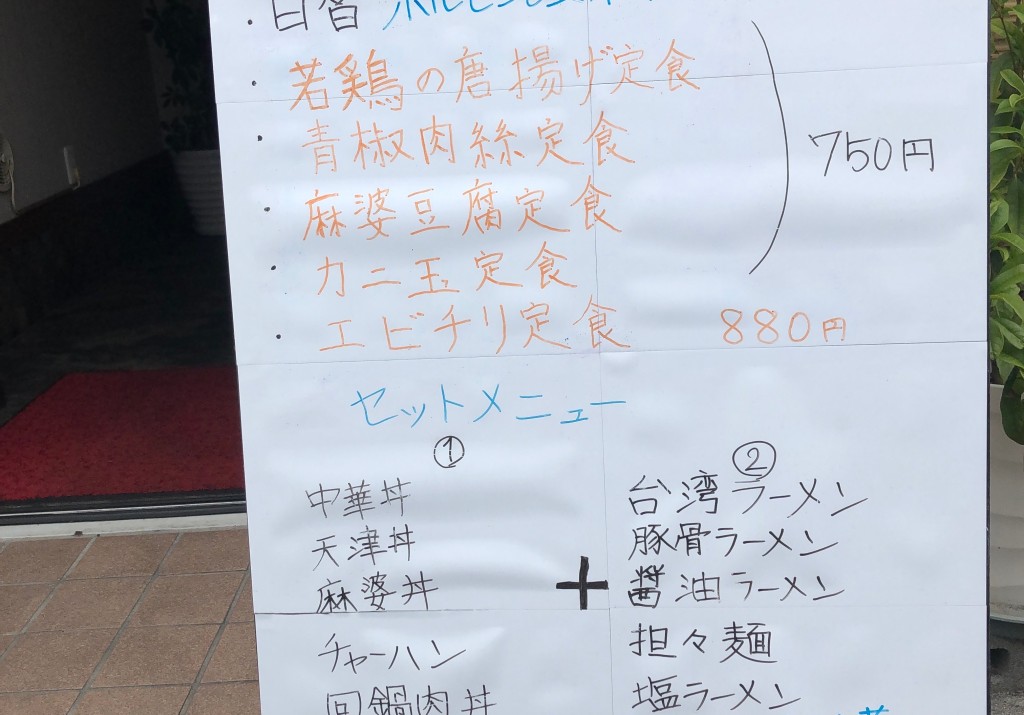 ・若鶏の唐揚げ定食
・青椒肉絲定食
・麻婆豆腐定食
750円
・カニ玉定食
・エビチリ定食 880円
セットメニュー
① ②
中華丼 台湾ラーメン
天津丼 豚骨ラーメン
麻婆丼 + 醤油ラーメン
チャーハン 担々麺
回鍋肉丼 塩ラーメン